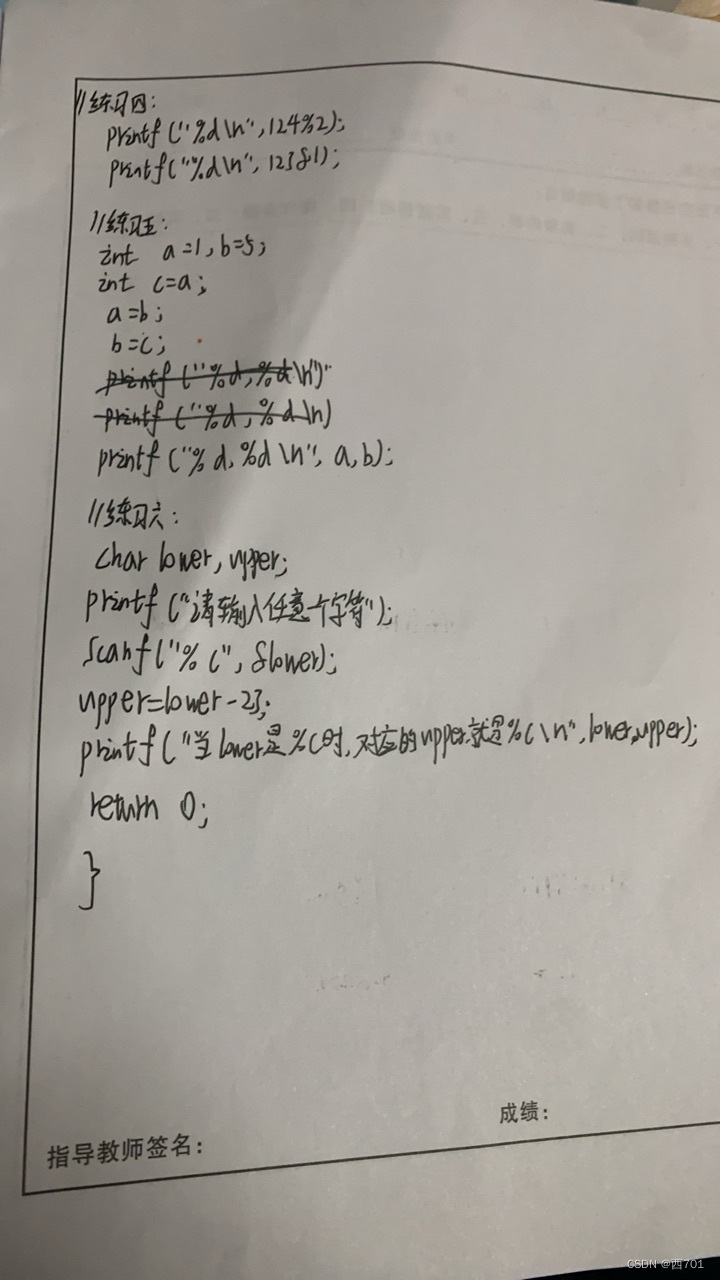 //练习四:
printf("%d\n",124%2);
printf("%d\n", 123&1);
//练习五:
int a=1,b=5;
int c=a;
a=b;
b=c;
printf("%d,%d\n")"
printf("%d,%d\n)
printf("%d,%d\n", a,b);
//练习六:
char lower,upper;
printf("请输入任意一个字符");
scanf("%c", &lower);
upper=lower-23;
printf("当lower是%c时,对应的upper就是%c\n",lower,upper);
return 0;
}
成绩:
指导教师签名:
CSDN @西701